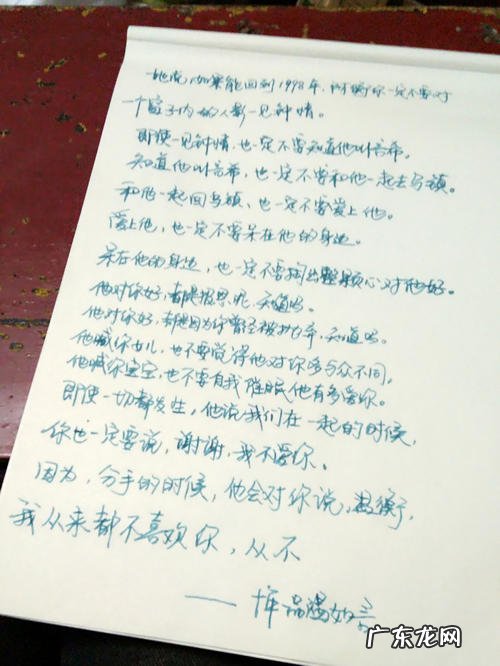 她说如果能回到1998年,阿衡你一定不要对
一个窗子内的人影一见钟情。
即使一见钟情,也一定不要知道他叫言希。
知道他叫言希,也一定不要和他一起去乌镇。
和他一起回乌镇、也一定不要爱上他。
爱上他,也一定不要呆在他的身边。
呆在他的身边,也一定不要掏出整颗心对他好。
他对你好,都是报恩呢,知道吗。
他对你好,都是因为你曾经被抛弃,知道吗。
他喊你女儿,也不要觉得他对你多与众不同,
他喊你宝宝,也不要自我催眠他有多爱你。
即使一切都发生,他说我们在一起的时候,
你也一定要说,谢谢,我不爱你。
因为,分手的时候,他会对你说,温衡,
我从来都不喜欢你,从不
——十年一品温如言
广东龙网